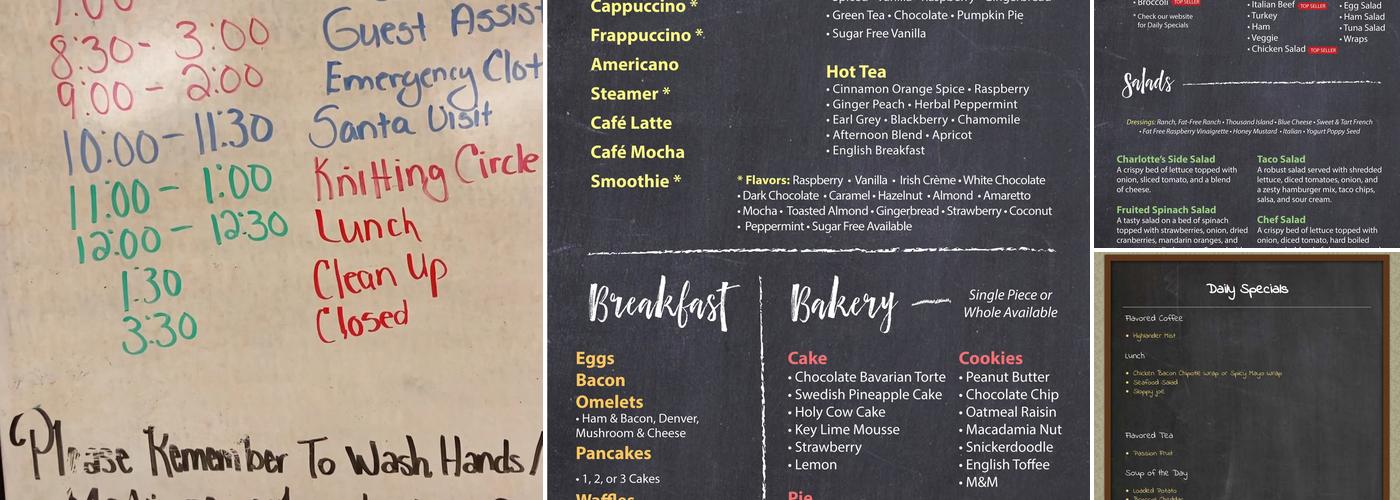 8:30 - 3:00 Guest Assist
9:00 - 2:00 Emergency Clot
10:00 - 11:30 Santa Visit
11:00 - 1:00 Knitting Circle
12:00 - 12:30 Lunch
1:30 Clean Up
3:30 Closed
Please Remember To Wash Hands /
Cappuccino *
Frappuccino *
Americano
Steamer *
Café Latte
Café Mocha
Smoothie *
• Green Tea • Chocolate • Pumpkin Pie
• Sugar Free Vanilla
Hot Tea
• Cinnamon Orange Spice • Raspberry
• Ginger Peach • Herbal Peppermint
• Earl Grey • Blackberry • Chamomile
• Afternoon Blend • Apricot
• English Breakfast
* Flavors: Raspberry • Vanilla • Irish Crème • White Chocolate
• Dark Chocolate • Caramel • Hazelnut • Almond • Amaretto
• Mocha • Toasted Almond • Gingerbread • Strawberry • Coconut
• Peppermint • Sugar Free Available
Breakfast
Eggs
Bacon
Omelets
• Ham & Bacon, Denver,
Mushroom & Cheese
Pancakes
• 1, 2, or 3 Cakes
Waffles
Bakery — Single Piece or
Whole Available
Cake
• Chocolate Bavarian Torte
• Swedish Pineapple Cake
• Holy Cow Cake
• Key Lime Mousse
• Strawberry
• Lemon
Pie
Cookies
• Peanut Butter
• Chocolate Chip
• Oatmeal Raisin
• Macadamia Nut
• Snickerdoodle
• English Toffee
• M&M
• Broccoli TOP SELLER
* Check our website
for Daily Specials
• Italian Beef TOP SELLER
• Turkey
• Ham
• Veggie
• Chicken Salad TOP SELLER
• Egg Salad
• Ham Salad
• Tuna Salad
• Wraps
Salads
Dressings: Ranch, Fat-Free Ranch • Thousand Island • Blue Cheese • Sweet & Tart French
• Fat Free Raspberry Vinaigrette • Honey Mustard • Italian • Yogurt Poppy Seed
Charlotte's Side Salad
A crispy bed of lettuce topped with
onion, sliced tomato, and a blend
of cheese.
Fruited Spinach Salad
A tasty salad on a bed of spinach
topped with strawberries, onion, dried
cranberries, mandarin oranges, and
Taco Salad
A robust salad served with shredded
lettuce, diced tomatoes, onion, and
a zesty hamburger mix, taco chips,
salsa, and sour cream.
Chef Salad
A crispy bed of lettuce topped with
onion, diced tomato, hard boiled
Daily Specials
Flavored Coffee
• Highlander Mist
Lunch
• Chicken Bacon Chipotle Wrap or Spicy Mayo Wrap
• Seafood Salad
• Sloppy Joe
Flavored Tea
• Passion Fruit
Soup of the Day
• Loaded Potato
• Broccoli Cheddar